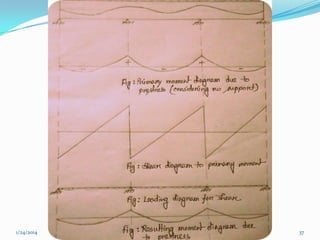 Fig: Primary moment diagram due to
prestress (considering no support)
Fig: Shear diagram to primary moment
Fig: Loading diagram for shear
Fig: Resulting moment diagram due
to prestress
1/24/2014
37